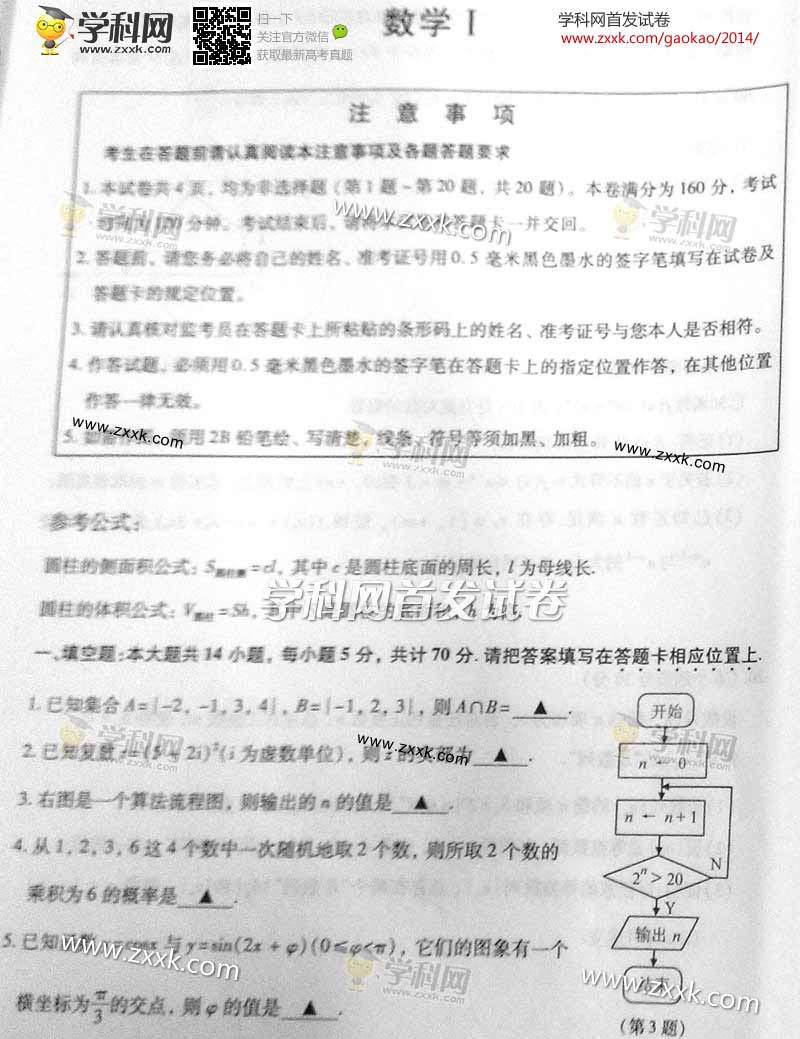 学科网
www.zxxk.com
扫一下
关注官方微信
获取最新高考真题
数学Ⅰ
学科网首发试卷
www.zxxk.com/gaokao/2014/
注意事项
考生在答题前请认真阅读本注意事项及各题答题要求
1. 本试卷共4页，均为非选择题（第1题~第20题，共20题）。本卷满分为160分，考试
分钟。考试结束后，请将 答题卡一并交回。
2. 答题前，请您务必将自己的姓名、准考证号用0.5毫米黑色墨水的签字笔填写在试卷及
答题卡的规定位置。
3. 请认真核对监考员在答题卡上所粘贴的条形码上的姓名、准考证号与您本人是否相符。
4. 作答试题，必须用0.5毫米黑色墨水的签字笔在答题卡上的指定位置作答，在其他位置
作答一律无效。
5. 如需作图，须用2B铅笔绘、写清楚，线条、符号等须加黑、加粗。
www.zxxk.com
参考公式：
圆柱的侧面积公式：S圆柱侧=cl，其中c是圆柱底面的周长，l为母线长.
圆柱的体积公式：V圆柱=Sh，
学科网首发试卷
一、填空题：本大题共14小题，每小题5分，共计70分. 请把答案填写在答题卡相应位置上.
1. 已知集合A={-2，-1，3，4}，B={-1，2，3}，则A∩B= ▲ .
2. 已知复数 (i为虚数单位)，则z的实部为 ▲ .
3. 右图是一个算法流程图，则输出的n的值是 ▲ .
4. 从1，2，3，6这4个数中一次随机地取2个数，则所取2个数的
乘积为6的概率是 ▲ .
5. 已知函数y=cosx与y=sin(2x+φ)(0≤φ<π)，它们的图象有一个
横坐标为π/3的交点，则φ的值是 ▲ .
开始
n ← 0
n ← n+1
2ⁿ>20
N
Y
输出n
结束
(第3题)